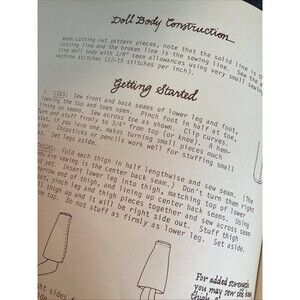 Doll Body Construction
When cutting out pattern pieces, note that the solid line is th
cutting line and the broken line is the sewing line. Sew the
tire doll body with 1/8" seam allowances using very small sewing
machine stitches (12-15 stitches per inch).
Getting Started
1. LEGS: Sew front and back seams of lower leg and foot,
leaving the top and toes open. Pinch foot in half at toe,
ning seams. Sew across toe as shown. Clip curves,
rn and stuff firmly to 3/4" from top (on knee). A hem-
tat, if you have one, makes turning small pieces much
sier. Chopsticks or pencils work well for stuffing small
THIGHS: Fold each thigh in half lengthwise and sew seam. (The
you are sewing is the center back seam.) Don't turn them right
out yet. Insert lower leg into thigh, matching top of lower
om of thigh and lining up center back seams. Using
pinch leg and thigh pieces together and sew across seam
thigh up and it will be right side out. Stuff thigh
om top. Do not stuff as firmly as lower leg. Set aside.
For added strength
you may sew the
thigh
ight sides
side